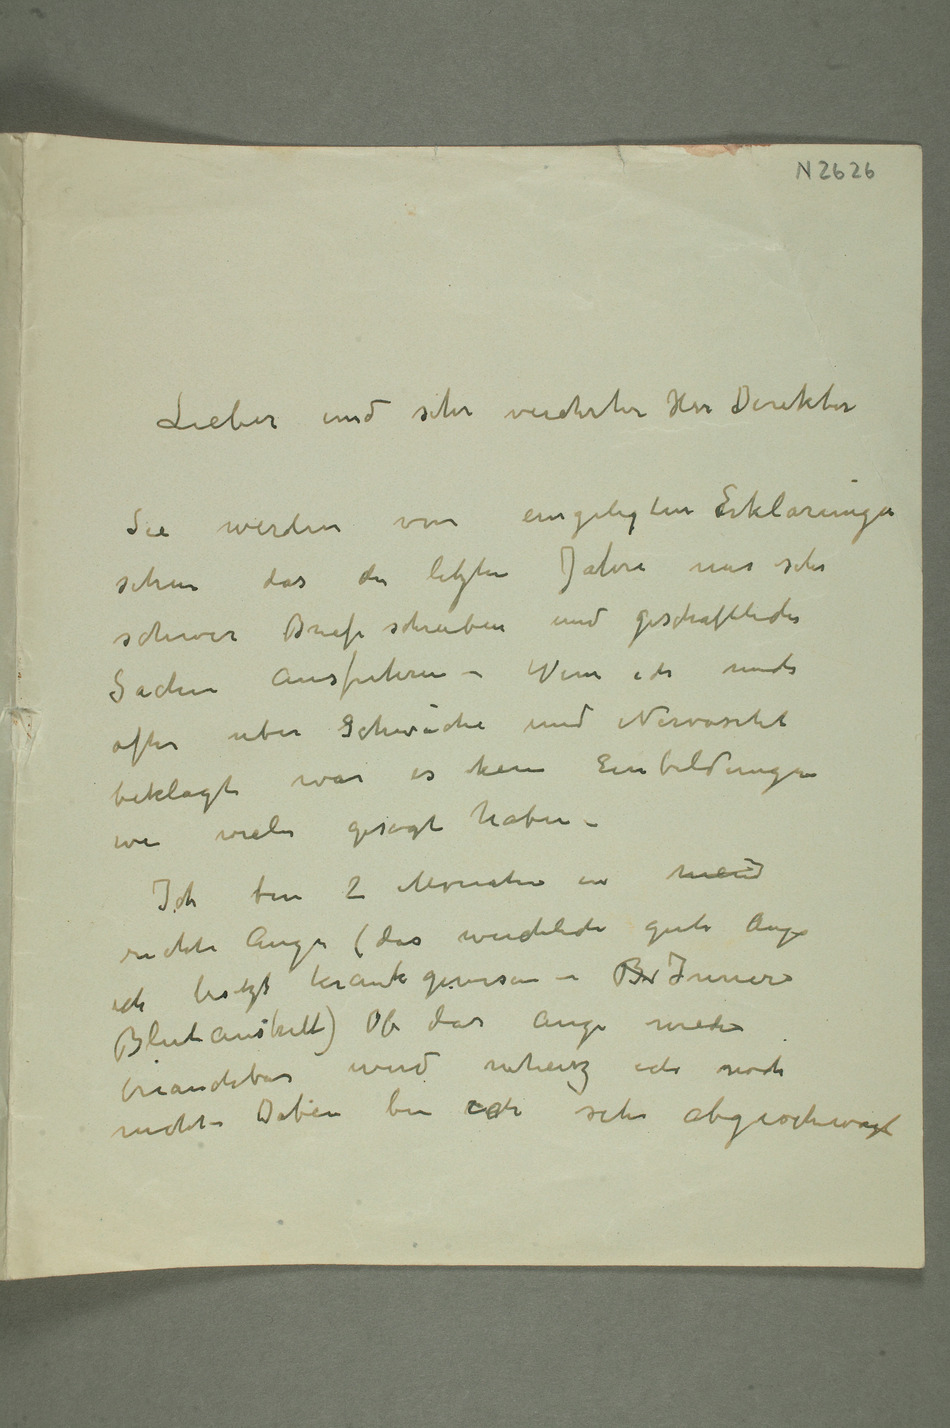 N 2626
Lieber und sehr verehrter Herr Direktor
Sie werden von eingelegten Erklarungen
sehen das die letzten Jahre mir sehr
schwer Briefe schreiben und geschaftliche
Sachen ausfuhren – Wenn ich mich
ofter uber Schwäche und Nervositet
beklagte war es kein Einbildungen
wie viele gesagt haben –
Ich bin 2 Monaten in mein
rechte Auge (das wirkliche gute Auge
ich besitzt krank gewesen – Br Innere
Blutaustritt) Ob das Auge wieder
brauchbar wird weiss ich noch
nicht – Dabei bin ich sehr abgeschwägt